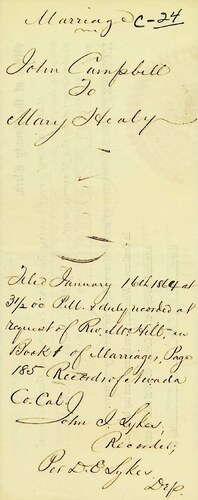 Marriage C-24
John Campbell
To
Mary Healy
Filed January 16th 1864 at
3 1/2 oo P.M. & duly recorded at
request of Rev. Mr. in
Book 1 of Marriages, Page
185 Records of Nevada
Co. Cal.
John I. Sykes,
Recorder,
Per D. E. Sykes
Dep.